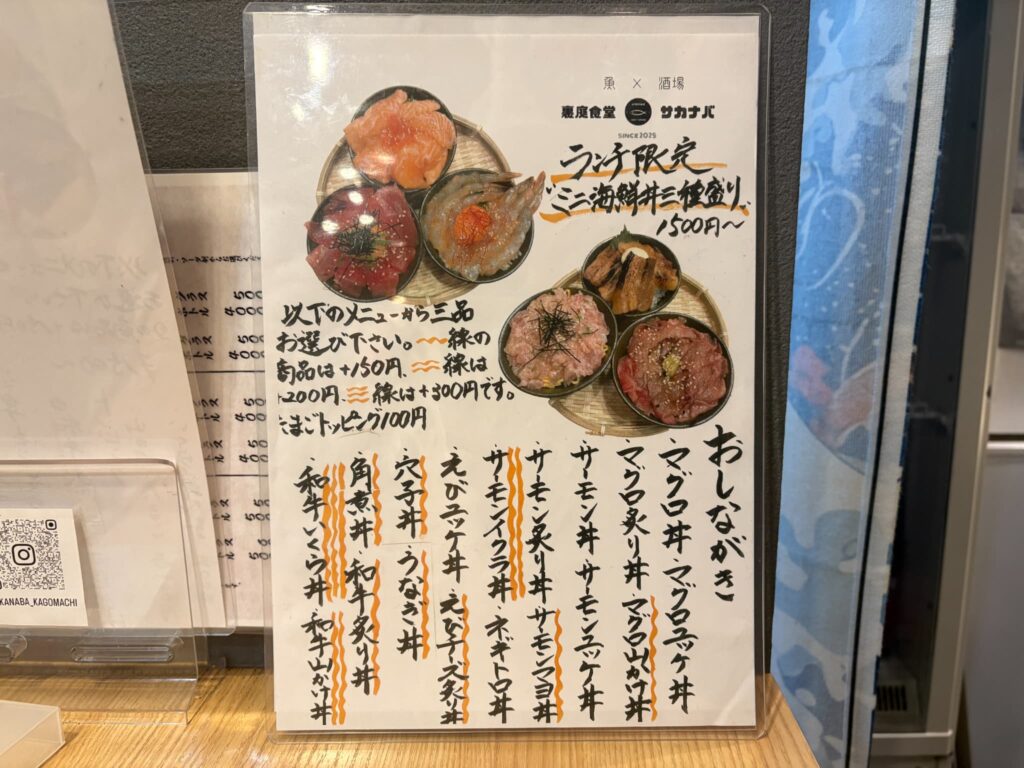 魚 × 酒場
裏庭食堂 サカナバ
SINCE2025
ランチ限定
"ミニ海鮮丼三種盛り"
1500円〜
以下のメニューから三品
お選び下さい。〰線の
商品は+150円、線は
+200円、線は+300円です。
たまごトッピング100円
おしながき
・マグロ丼 ・マグロユッケ丼
・マグロ炙り丼 ・マグロ山かけ丼
・サーモン丼 ・サーモンユッケ丼
・サーモン炙り丼 ・サーモンマヨ丼
・サーモンイクラ丼 ・ネギトロ丼
・えびユッケ丼 ・えびチーズ炙り丼
・穴子丼 ・うなぎ丼
・角煮丼 ・和牛炙り丼
・和牛いくら丼 ・和牛山かけ丼
グラス 500
ボトル 4000
KANABA_KAGOMACHI